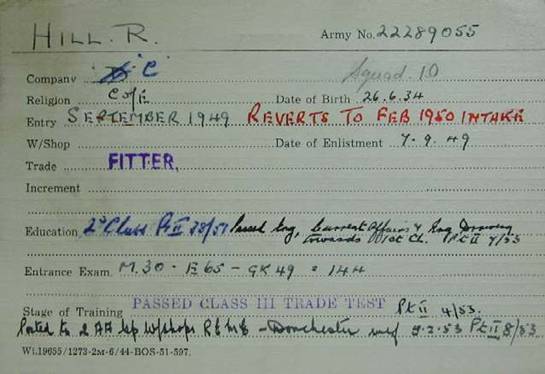 HILL. R. Army No. 22289055
Company "C" Squad. 10
Religion C of E Date of Birth 26.6.34
Entry SEPTEMBER 1949 REVERTS TO FEB 1950 INTAKE
W/Shop Date of Enlistment 7.9.49
Trade FITTER.
Increment
Education 2d Class Pt II 28/51 Passed Eng, Current Affairs & Eng Drawing
towards 1st Ch. Pt II 7/53
Entrance Exam. M.30 - E65 - GK49 = 144
Stage of Training PASSED CLASS III TRADE TEST Pt II 4/53.
Posted to 2 AA W/shops REME - Dorchester wef 9.2.53 Pt II 8/53.
Wt.19655/1273-2M-6/44-BOS-51-597.